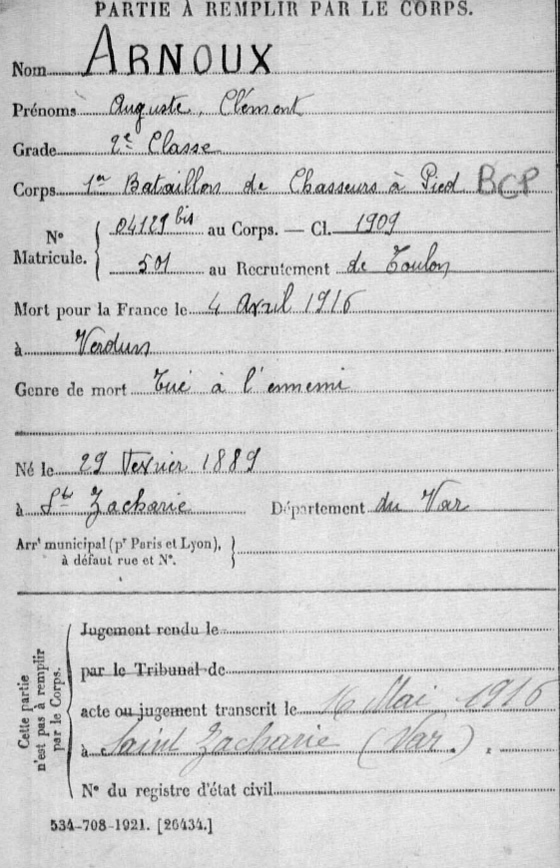 PARTIE À REMPLIR PAR LE CORPS.
Nom ARNOUX
Prénoms Auguste, Clément
Grade 2e Classe
Corps 1er Bataillon de Chasseurs à Pied BCP
No Matricule. 04129 bis au Corps. — Cl. 1909
501 au Recrutement de Toulon
Mort pour la France le 4 Avril 1916
à Verdun
Genre de mort Tué à l'ennemi
Né le 29 Fevrier 1889
à St Zacharie Département du Var
Arrt municipal (pr Paris et Lyon),
à défaut rue et No.
Cette partie n'est pas à remplir par le Corps.
Jugement rendu le
par le Tribunal de
acte ou jugement transcrit le 16 Mai 1916
à Saint Zacharie (Var.)
No du registre d'état civil
534-708-1921. [26434.]